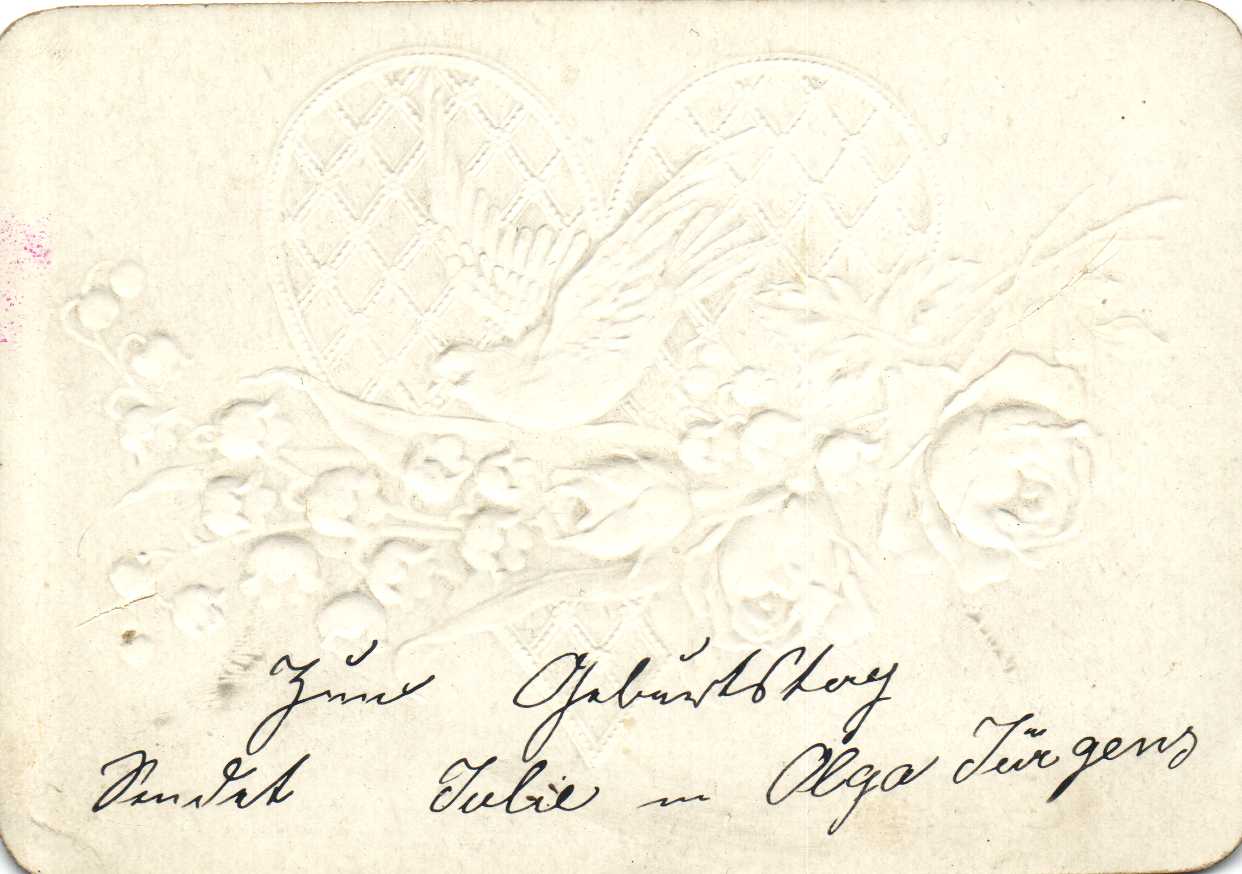 Zum Geburtstag
Sendet Julie u Olga Jürgens